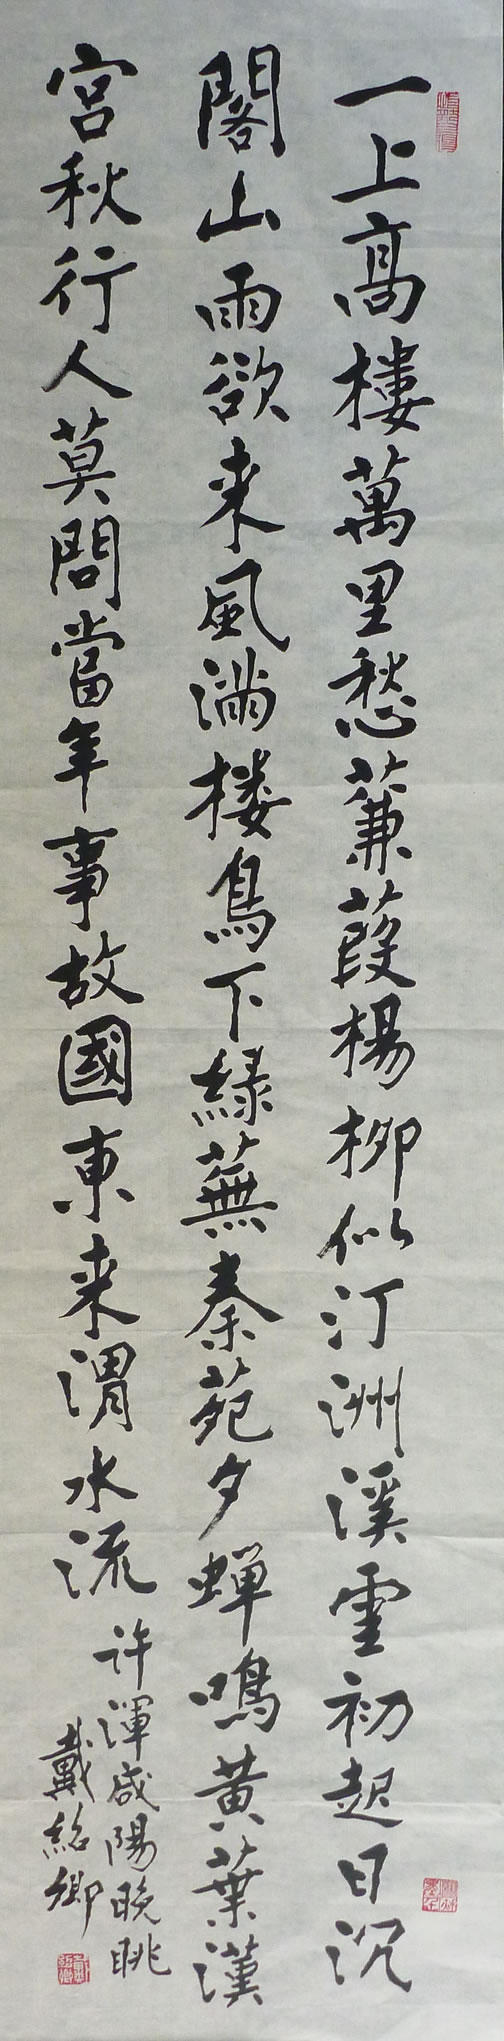 一上高樓萬里愁蒹葭楊柳似汀洲溪雲初起日沉
閣山雨欲来風滿楼鳥下綠蕪秦苑夕蟬鳴黄葉漢
宮秋行人莫問當年事故國東来渭水流
許渾咸陽晚眺
戴紹卿